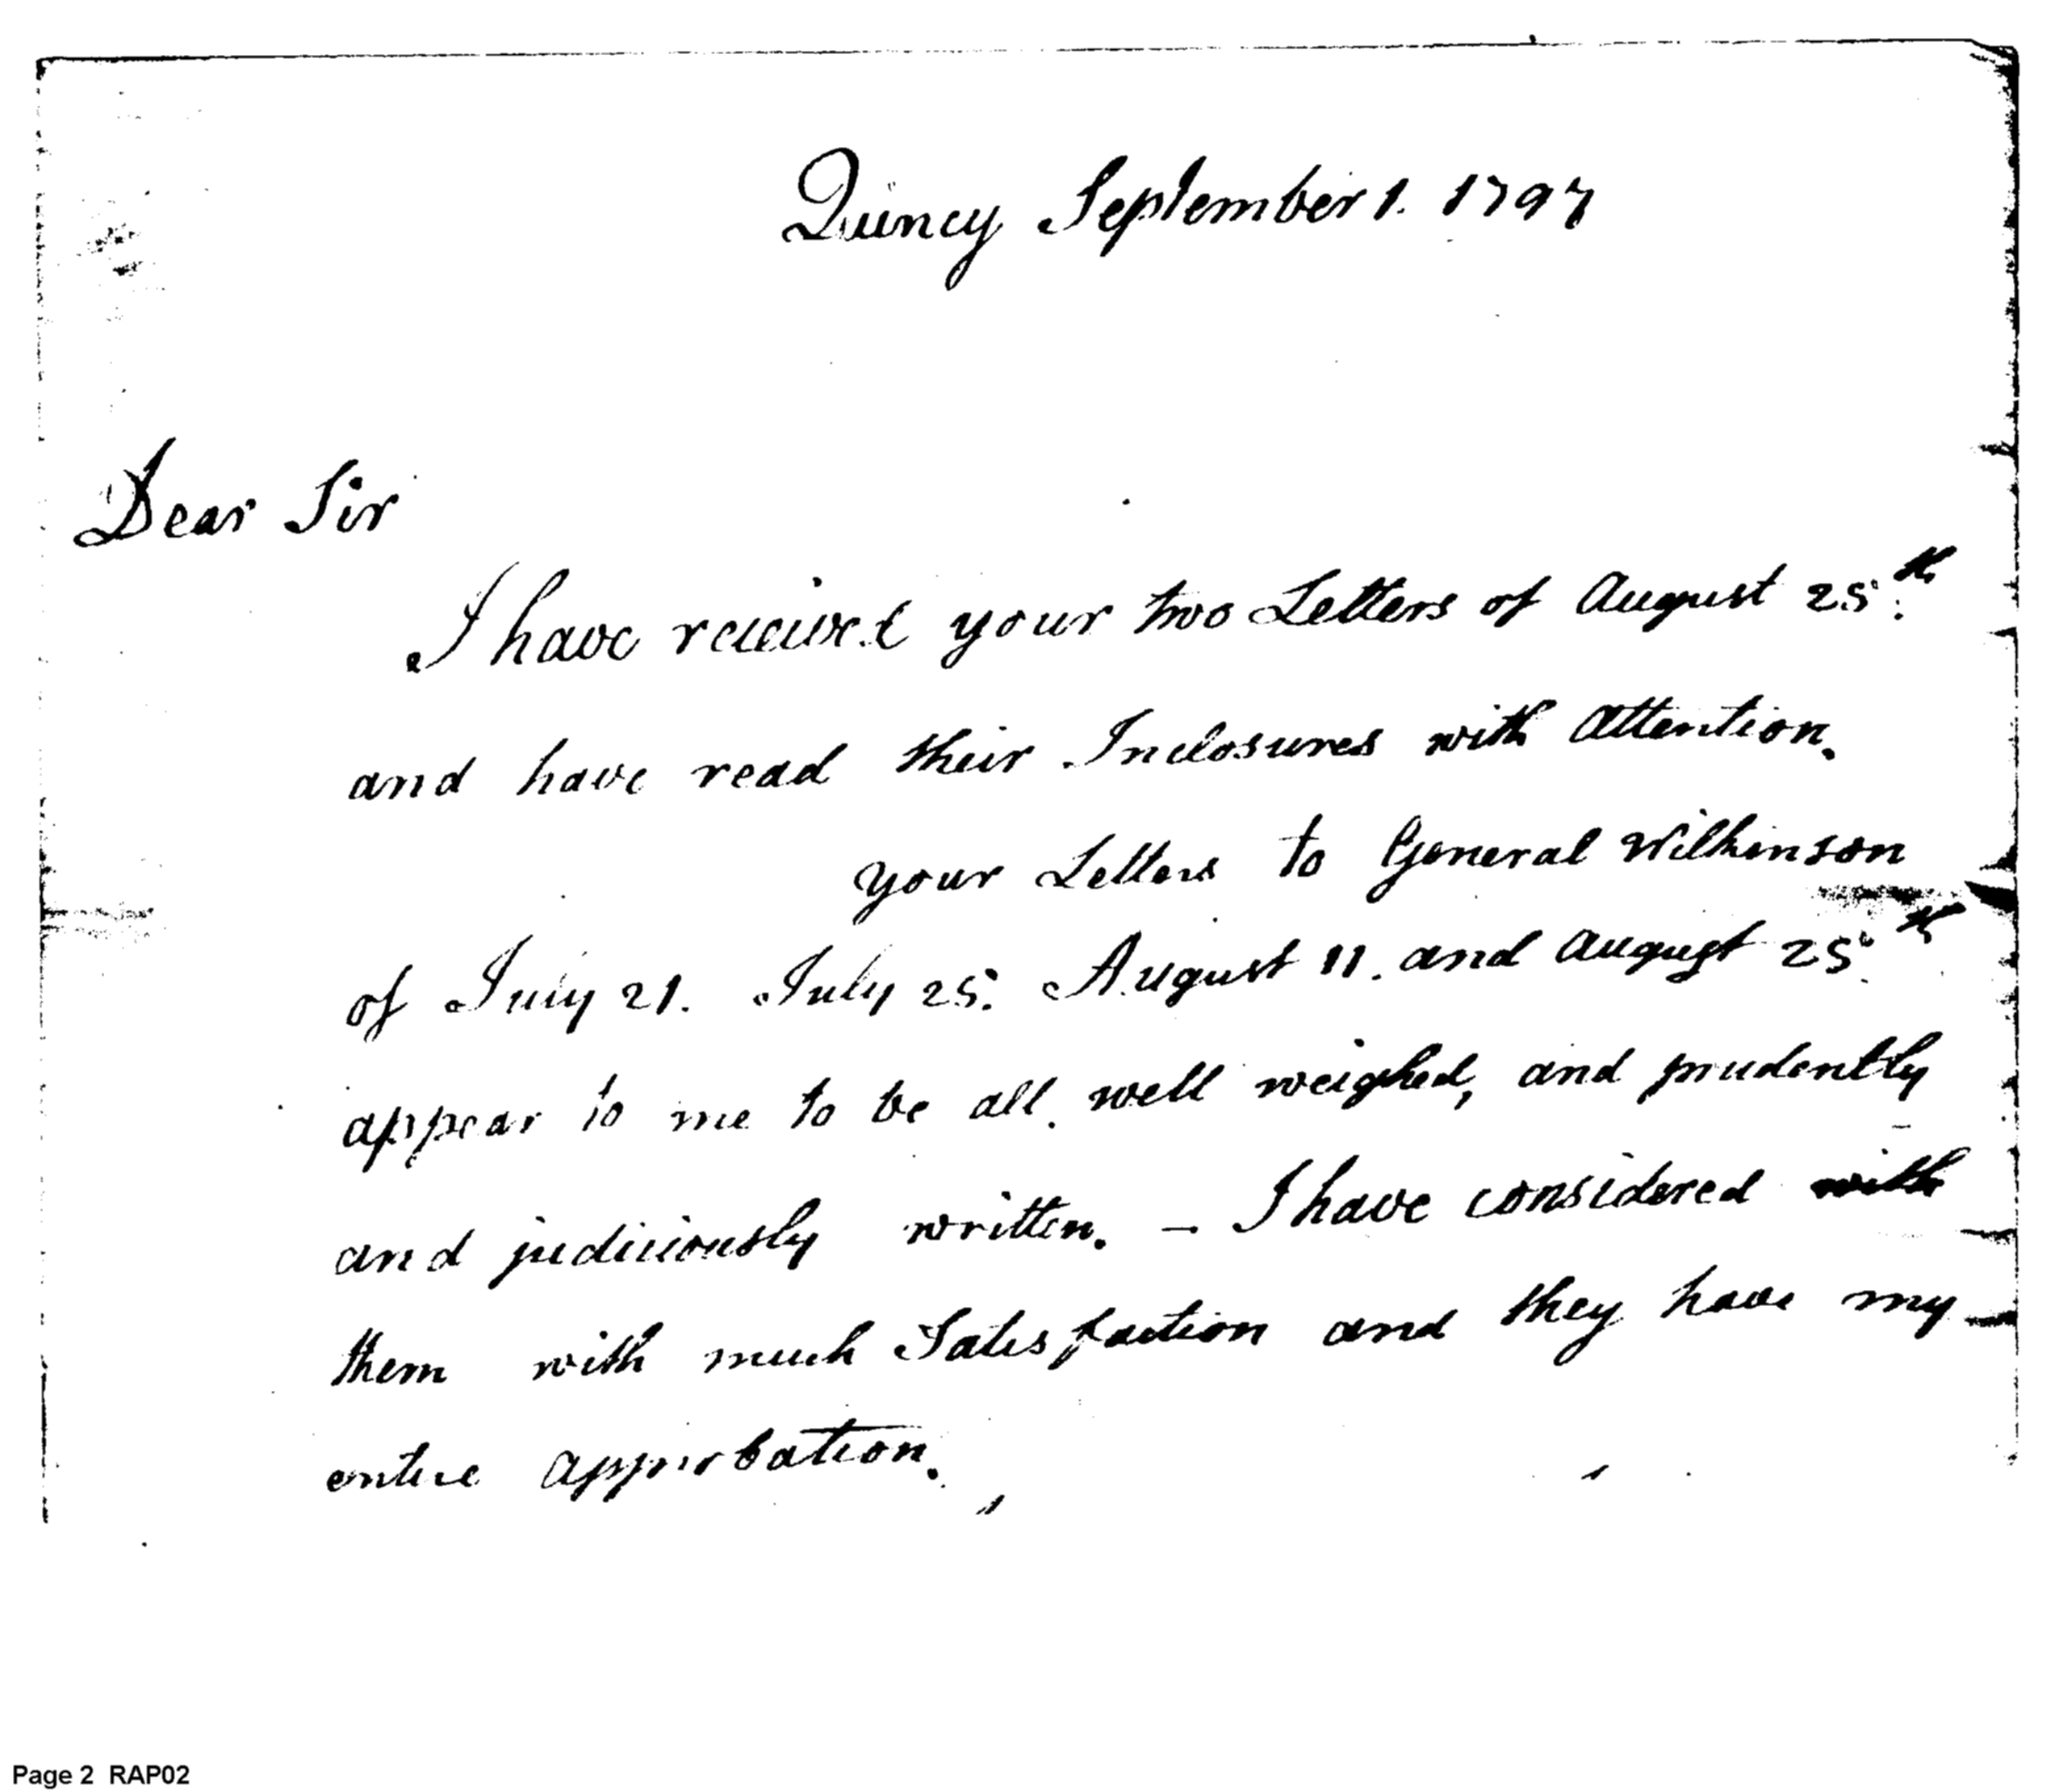 Quincy September 1. 1797
Dear Sir
I have received your two Letters of August 25th
and have read their Inclosures with Attention.
Your Letters to General Wilkinson
of July 21. July 25. August 11. and August 25th
appear to me to be all well weighed, and prudently
and judiciously written. — I have considered with
them with much Satisfaction and they have my
entire approbation.
Page 2 RAP02